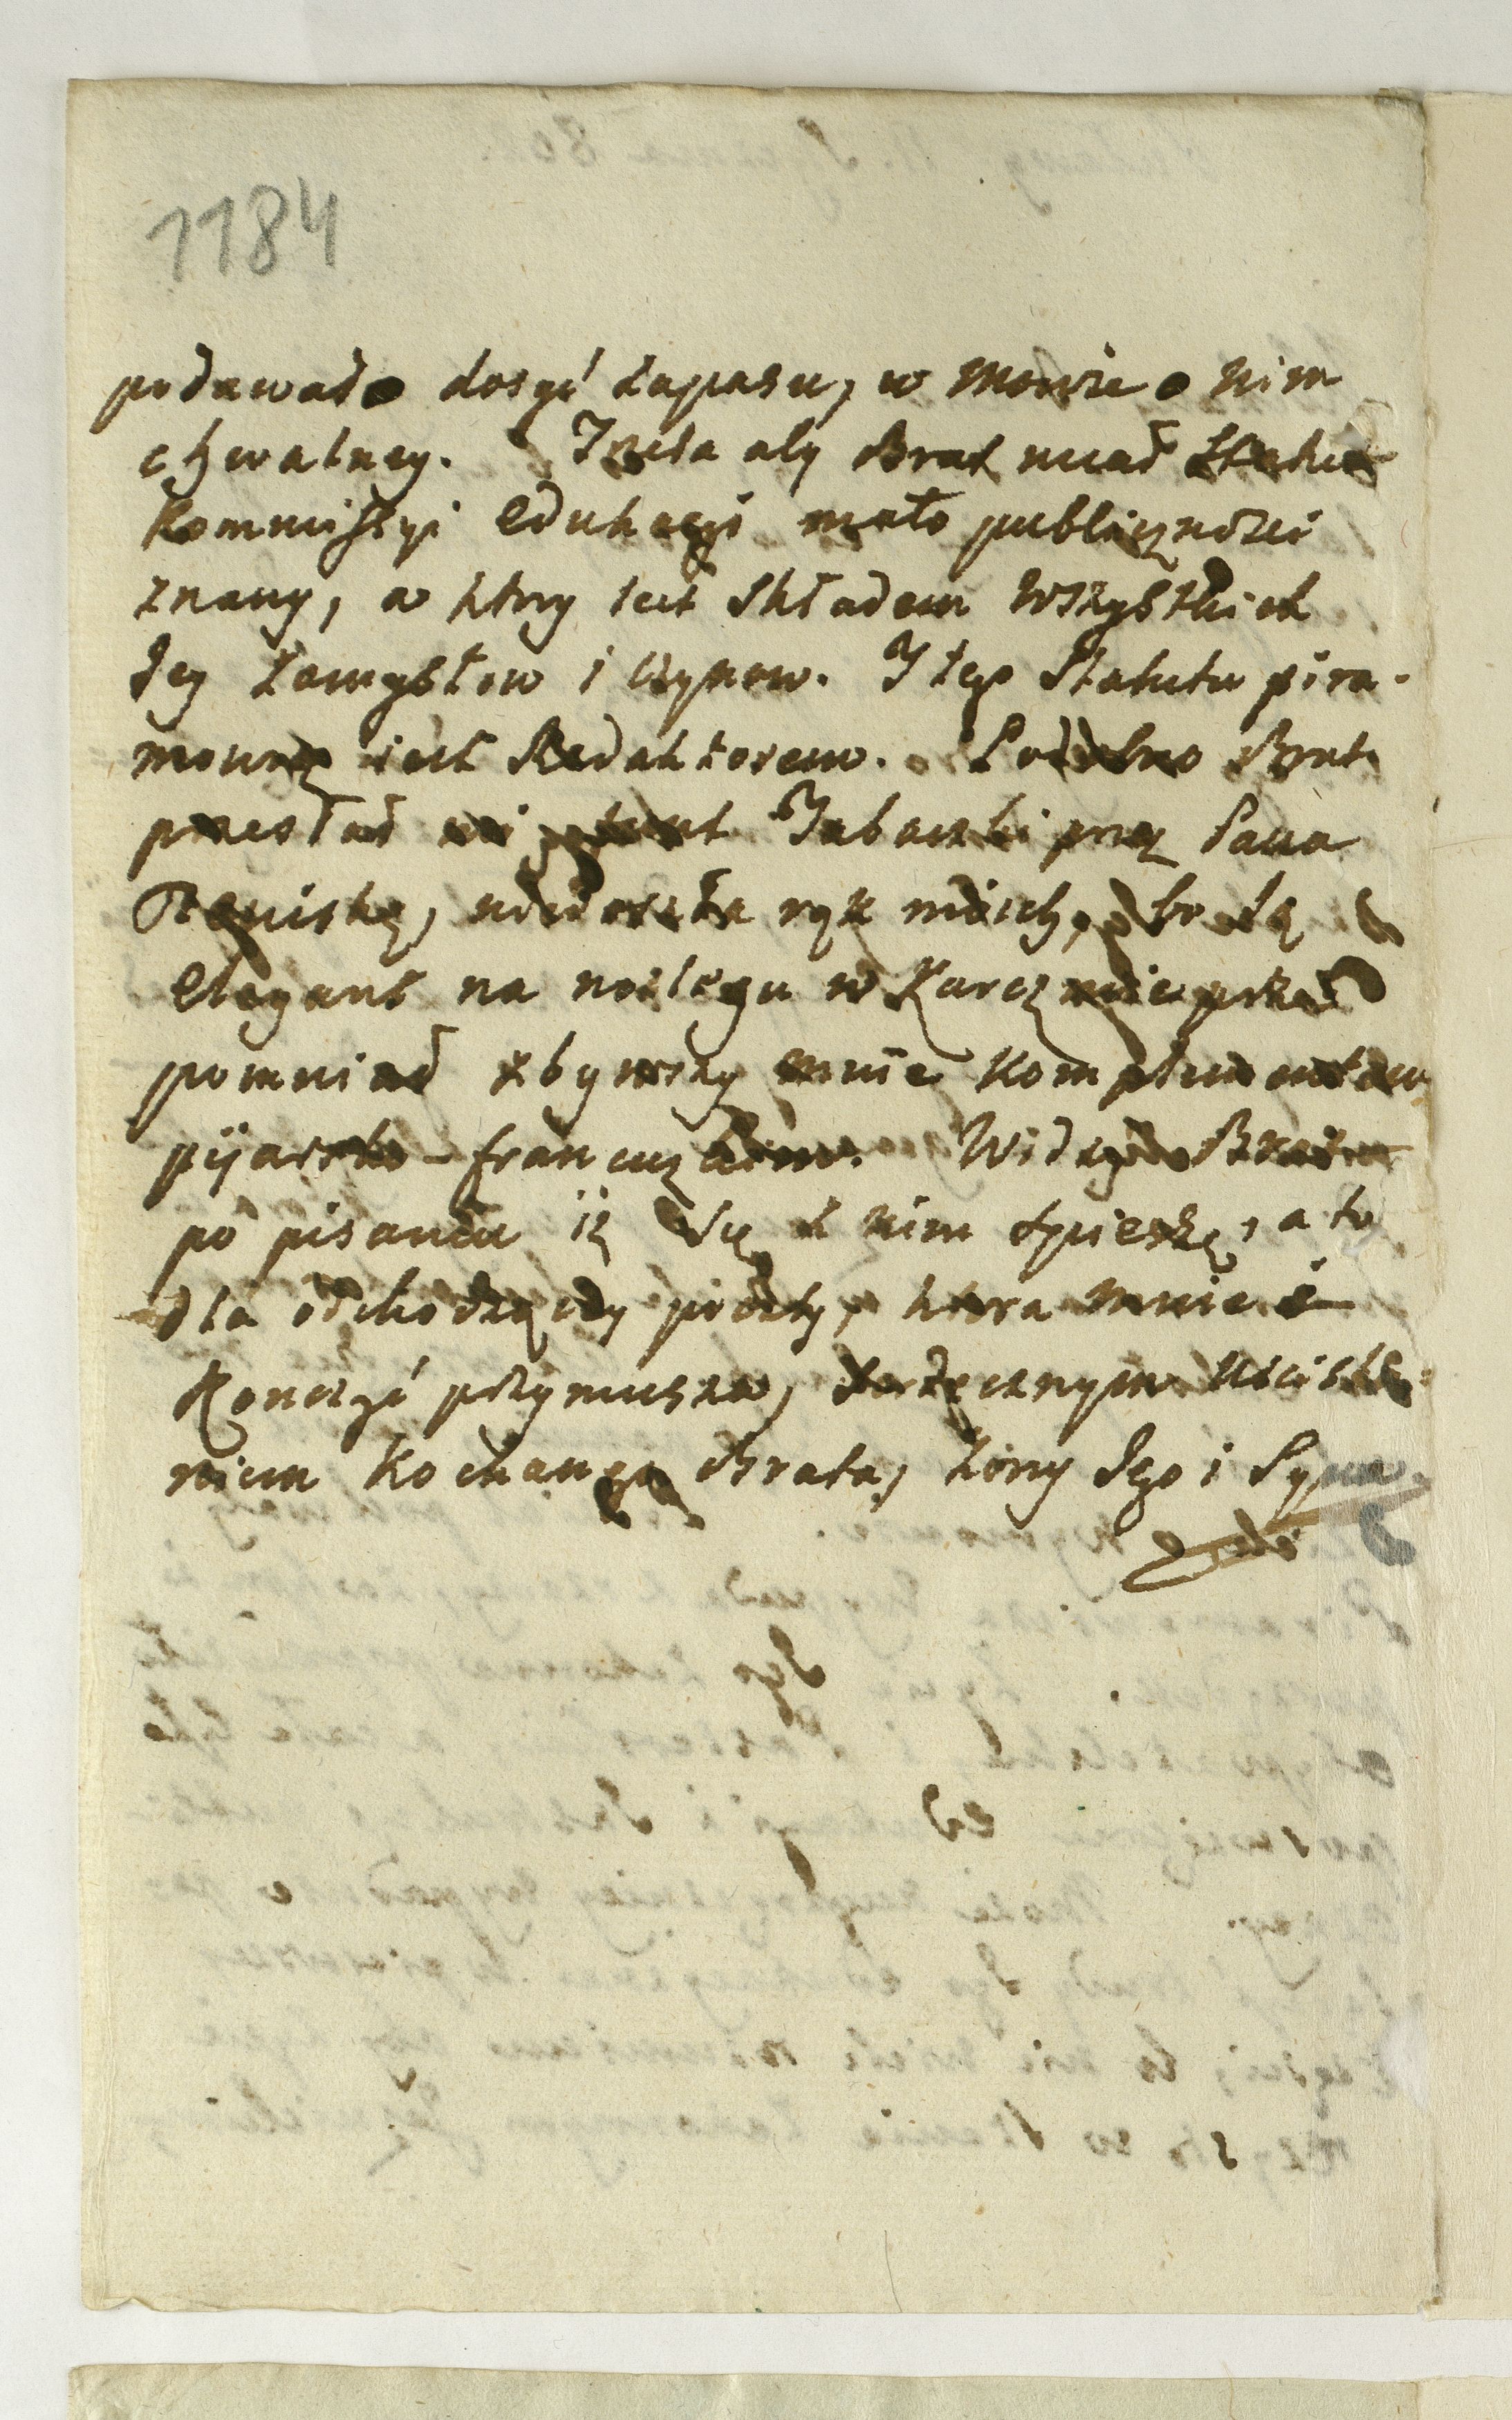 1184
podawało dosyć zapasu, w mowie o nim
chwalney. Trzeba aby Brat miał Statut
Kommissyi Edukacyi mało publicznosci
znany, a ktory iest składem wszystkich
Jey zamysłow i czynow. I tego Statutu pira-
mowicz iest Redaktorem. Podobno Brat
przesłał mi Tabaczki przez Pana
niedoszła rąk moich, bo Ją
Elegant na noclegu w Karczmie prze
pomniał zbywszy mnie Komplimentem
pijarsko-francuzkim. Widzi Brat
po pisaniu iż Się z nim spieszę, a to
dla odchodzącey poczty, ktora mnie i
Konczyć przymusza, serdecznym uściśnie-
niem Kochanego Brata, żony Jego i Syna